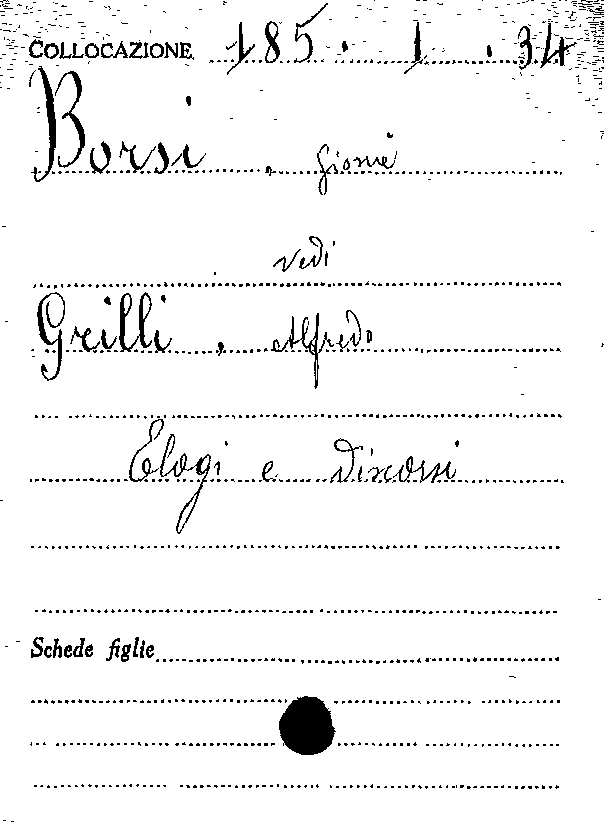 COLLOCAZIONE 185 . 1 . 34
Borsi , Giosuè
vedi
Grilli , Alfredo
Elogi e discorsi
Schede figlie